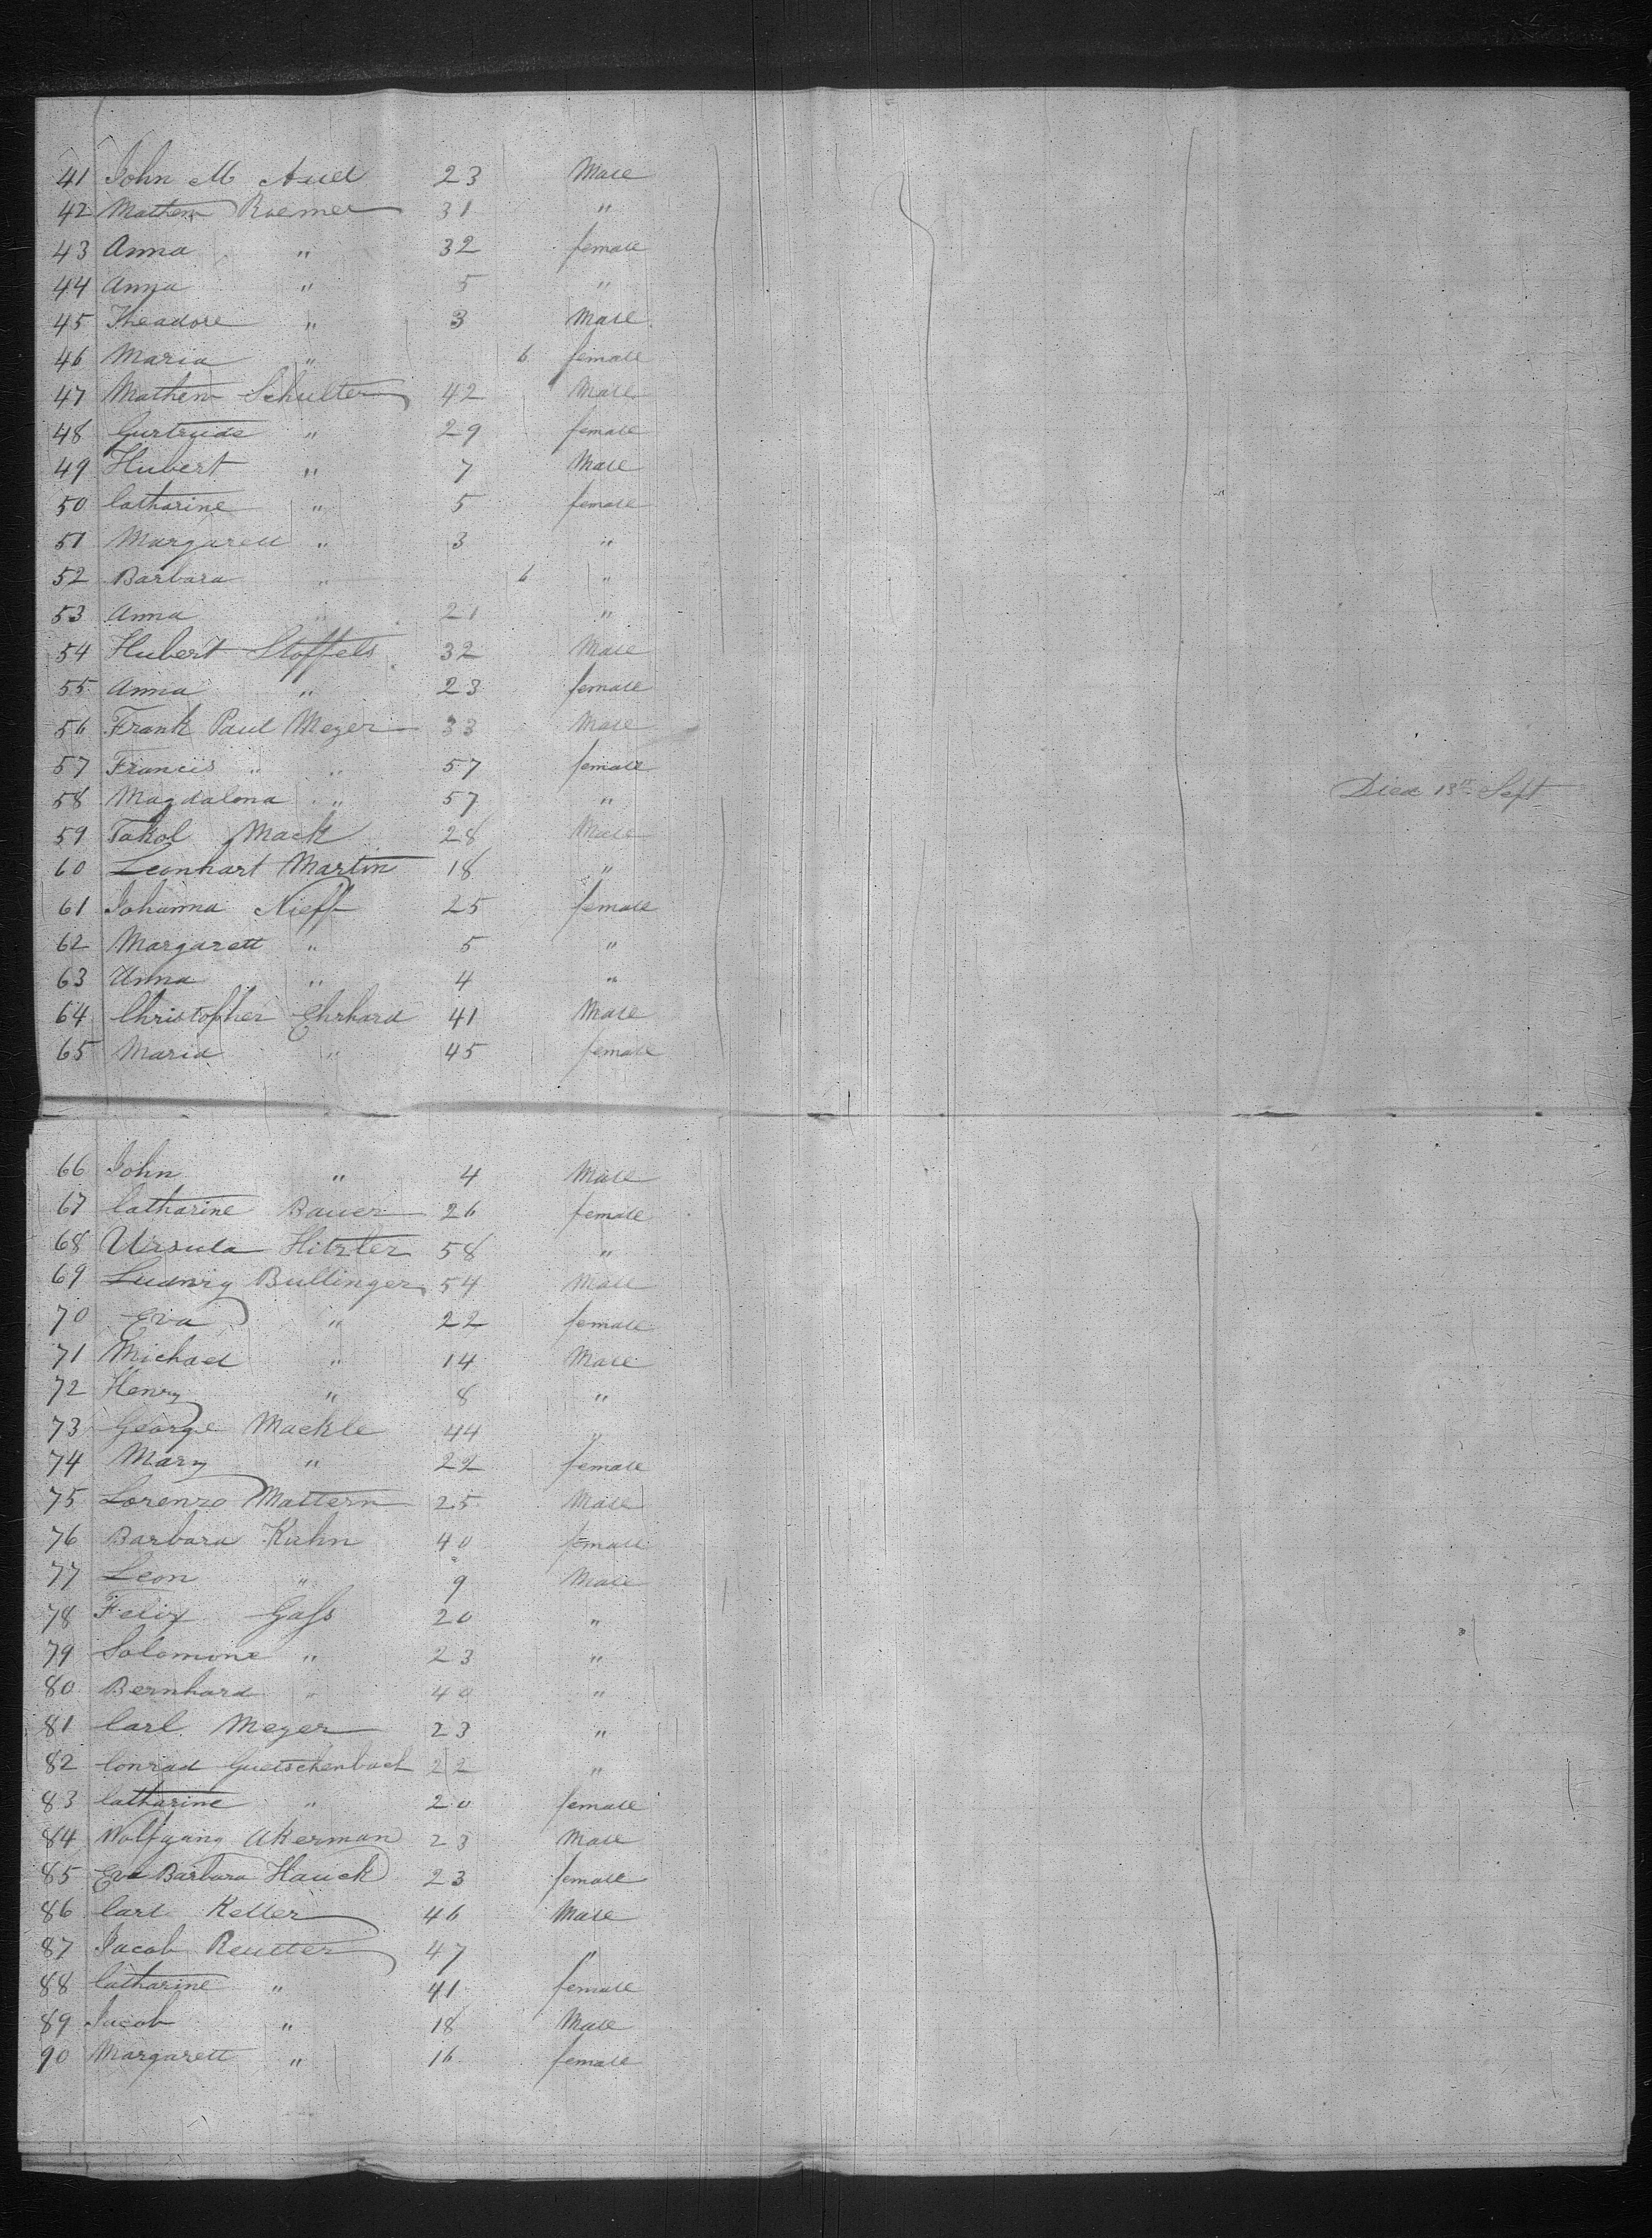 41 John M Auel 23 Male
42 Mathew Roemer 31 "
43 Anna " 32 female
44 Anna " 5 "
45 Theadore " 3 Male
46 Maria " 6 female
47 Mathew Schulter 42 Male
48 Gurtrude " 29 female
49 Hubert " 7 Male
50 Catharine " 5 female
51 Margarett " 3 "
52 Barbara " 6 "
53 Anna " 21 "
54 Hubert Stoffels 32 Male
55 Anna " 23 female
56 Frank Paul Meyer 33 Male
57 Francis " " 57 female
58 Magdalena " 57 " Died 13th Sept
59 Jakob Mack 28 Male
60 Leonhart Martin 18 "
61 Johanna Nieff 25 female
62 Margarett " 5 "
63 Anna " 4 "
64 Christopher Ehrhard 41 Male
65 Maria " 45 female
66 John " 4 Male
67 Catharine Bauer 26 female
68 Ursula Hitzler 58 "
69 Ludwig Bullinger 54 Male
70 Eva " 22 female
71 Michael " 14 Male
72 Henry " 8 "
73 George Mackle 44 "
74 Mary " 22 female
75 Lorenzo Mattern 25 Male
76 Barbara Kuhn 40 female
77 Leon " 9 Male
78 Felix Gass 20 "
79 Solomone " 23 "
80 Bernhard " 40 "
81 Carl Meyer 23 "
82 Conrad Guetschenbach 22 "
83 Catharine " 20 female
84 Wolfgang Akerman 23 Male
85 Eva Barbara Hauck 23 female
86 Carl Keller 46 Male
87 Jacob Reutter 47 "
88 Catharine " 41 female
89 Jacob " 18 Male
90 Margarett " 16 female